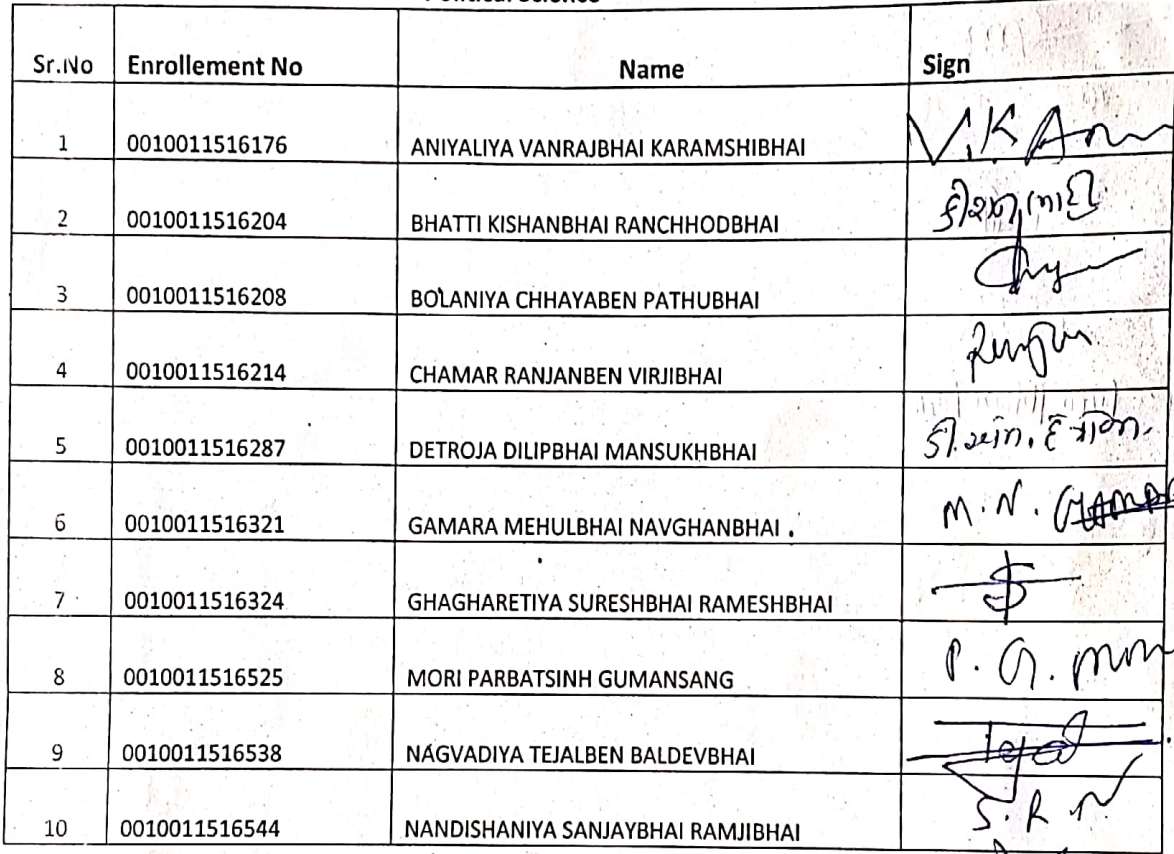 Political Science
Sr.No Enrollement No Name Sign
1 0010011516176 ANIYALIYA VANRAJBHAI KARAMSHIBHAI V.K
2 0010011516204 BHATTI KISHANBHAI RANCHHODBHAI
3 0010011516208 BOLANIYA CHHAYABEN PATHUBHAI
4 0010011516214 CHAMAR RANJANBEN VIRJIBHAI
5 0010011516287 DETROJA DILIPBHAI MANSUKHBHAI
6 0010011516321 GAMARA MEHULBHAI NAVGHANBHAI . M.N.
7 0010011516324 GHAGHARETIYA SURESHBHAI RAMESHBHAI
8 0010011516525 MORI PARBATSINH GUMANSANG P.G.
9 0010011516538 NAGVADIYA TEJALBEN BALDEVBHAI Tejal
10 0010011516544 NANDISHANIYA SANJAYBHAI RAMJIBHAI S.R.N